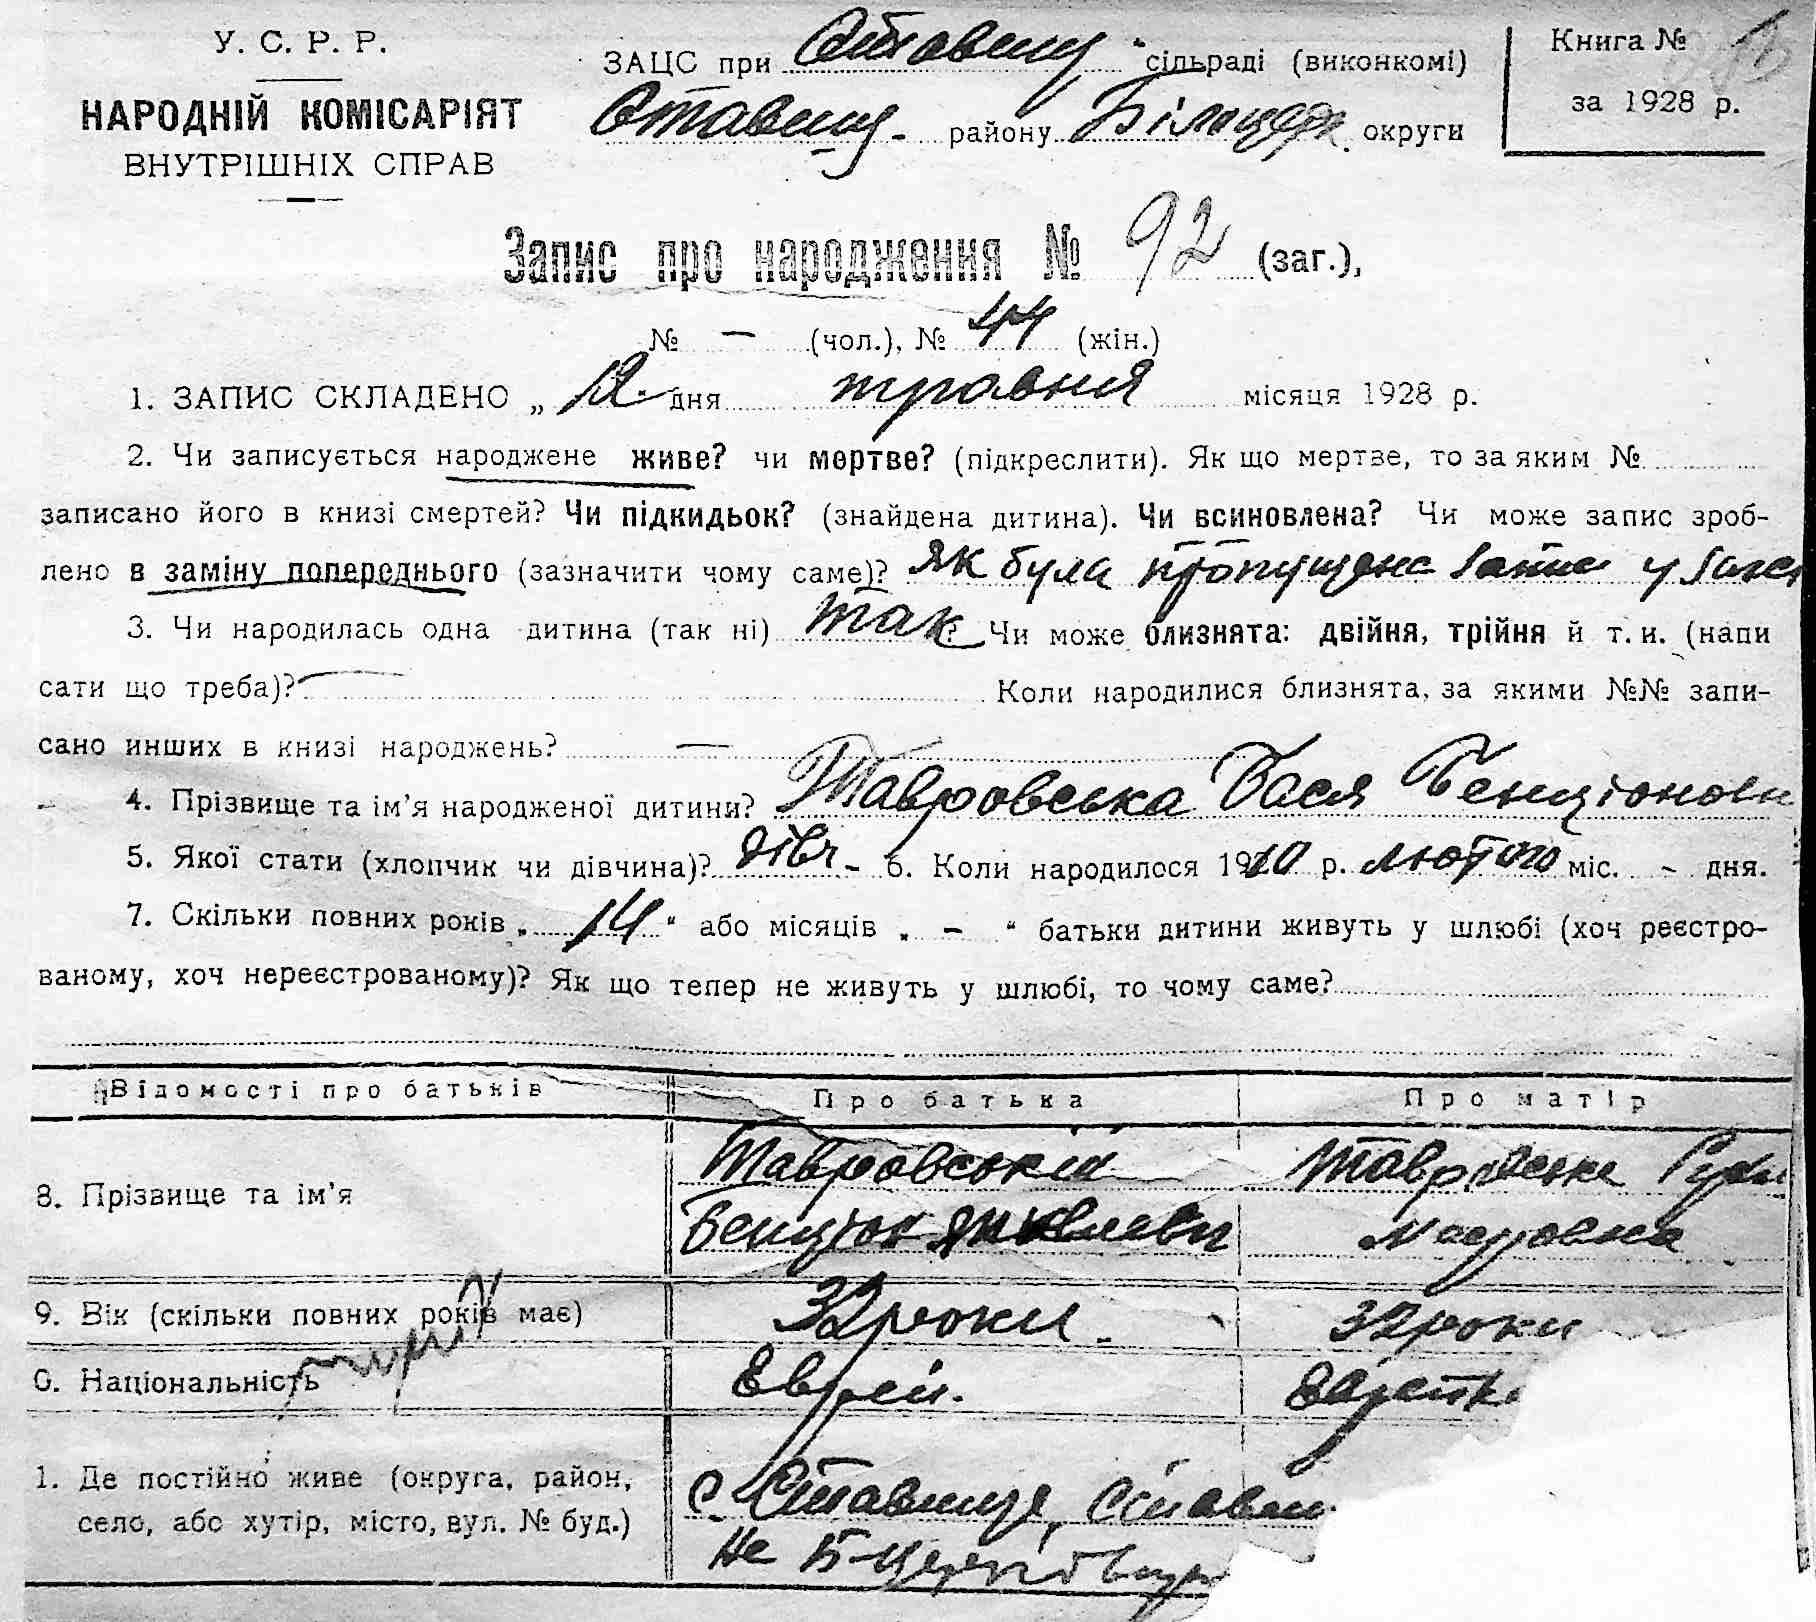 У. С. Р. Р.
НАРОДНІЙ КОМІСАРІЯТ
ВНУТРІШНІХ СПРАВ
ЗАЦС при Ставищ. сільраді (виконкомі)
Ставищ. району Білоцерк. округи
Книга №
за 1928 р.
Запис про народження № 92 (заг.),
№ — (чол.), № 44 (жін.)
1. ЗАПИС СКЛАДЕНО „ 12 дня травня місяця 1928 р.
2. Чи записується народжене живе? чи мертве? (підкреслити). Як що мертве, то за яким №
записано його в книзі смертей? Чи підкидьок? (знайдена дитина). Чи всиновлена? Чи може запис зроб-
лено в заміну попереднього (зазначити чому саме)? Як була пропущена запис у
3. Чи народилась одна дитина (так ні) так? Чи може близнята: двійня, трійня й т. и. (напи
сати що треба)? — Коли народилися близнята, за якими №№ запи-
сано инших в книзі народжень? —
4. Прізвище та ім’я народженої дитини? Тавровська Бася Бенціоновн
5. Якої стати (хлопчик чи дівчина)? дівч - 6. Коли народилося 1920 р. лютого міс. - дня.
7. Скільки повних років „ 14 “ або місяців „ – “ батьки дитини живуть у шлюбі (хоч реєстро-
ваному, хоч нереєстрованому)? Як що тепер не живуть у шлюбі, то чому саме?
Відомості про батьків
Про батька
Про матір
8. Прізвище та ім’я
Тавровський
Бенціон Янкелеви
Тавровська
9. Вік (скільки повних років має)
32 роки.
32 роки
0. Національність
Еврей.
Еврейка
1. Де постійно живе (округа, район,
село, або хутір, місто, вул. № буд.)
с. Ставище, Ставищ
не Б-церківщ